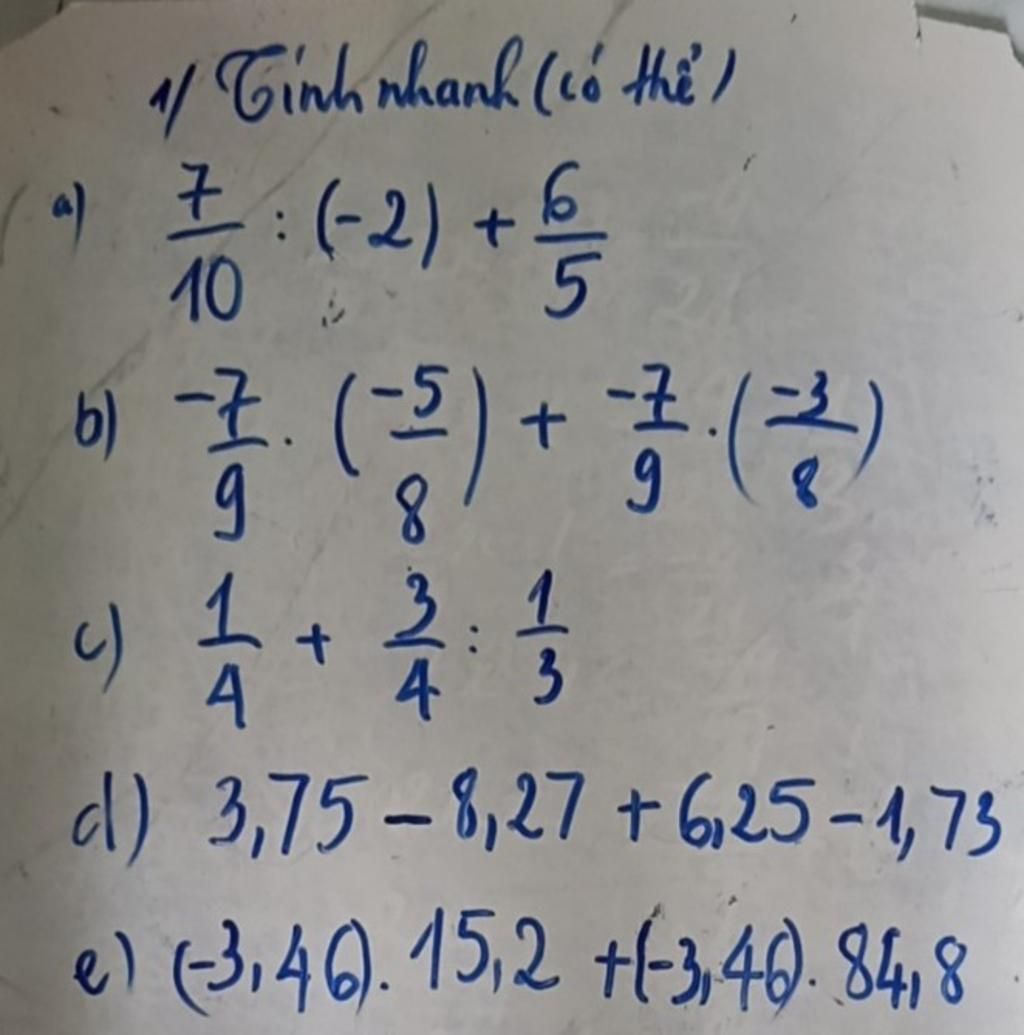 1/ Tính nhanh (có thể)
a) 7/10 : (-2) + 6/5
b) -7/9 . (-5/8) + -7/9 . (-3/8)
c) 1/4 + 3/4 : 1/3
d) 3,75 – 8,27 + 6,25 – 1,73
e) (-3,46). 15,2 + (-3,46). 84,8